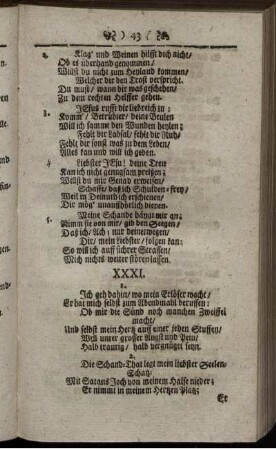 ) 43 (
2. Klag' und Weinen hilfft dich nicht/
Ob es überhand genommen/
Willst du nicht zum Heyland kommen/
Welcher dir den Trost verspricht.
Du must/ wann dir was geschehen/
Zu dem rechten Helffer gehen.
JEsus rufft dir liebreich zu:
3. Komm'/ Betrübter/ deine Beulen
Will ich samme den Wunden heylen:
Fehlt dir Labsal/ fehlt dir Ruh/
Fehlt dir sonst was zu dem Leben/
Alles kan und will ich geben.
4. Liebster JEsu! deine Treu
Kan ich nicht genugsam preisen;
Wollst du mir Genad erweisen/
Schaffs/ daß ich Schulden-frey/
Weil in Demuth ich erschienen/
Dir mög' unaufhörlich dienen.
Meine Schande hängt mir an;
5. Nimm sie von mir/ gib den Seegen/
Daß ich/ Ach; nur deinetwegen/
Dir/ mein Liebster/ folgen kan:
So will ich auf sichrer Strassen/
Mich nichts weiter stören lassen.
XXXI.
1.
Ich geh dahin/ wo mein Erlöser wacht/
Er hat mich selbst zum Abendmahl beruffen:
Ob mir die Sünd noch manchen Zweiffel
macht/
Und selbst mein Hertz auf einer jeden Stuffen/
Will unter grosser Angst und Pein/
Halb traurig/ halb vergnüget seyn.
2.
Die Schand-That legt mein liebster Seelen-
Schatz/
Mit Satans Joch von meinem Halse nieder;
Er nimmt in meinem Hertzen Platz;
Er